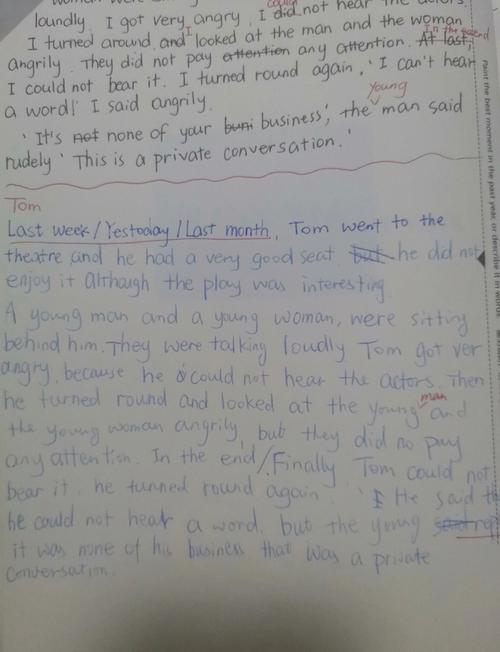 loundly. I got very angry. I could did not hear the actors.
I turned around, and I looked at the man and the woman
angrily. They did not pay attention any attention. At last, In the end
I could not bear it. I turned round again, 'I can't hear
a word!' I said angrily.
'It's not none of your buni business', the young man said
rudely 'This is a private conversation.'
Tom
Last week/Yestoday/Last month, Tom went to the
theatre and he had a very good seat but he did not
enjoy it although the play was interesting
A young man and a young woman, were sitting
behind him. They were talking loudly Tom got ver
angry, because he could not hear the actors. Then
he turned round and looked at the young man and
the young woman angrily, but they did no pay
any attention. In the end/Finally Tom could not
bear it, he tunned round again. 'I He said th
he could not hear a word. but the young said
it was none of his business that was a private
conversation.
Paint the best moment in the past year or describe it in